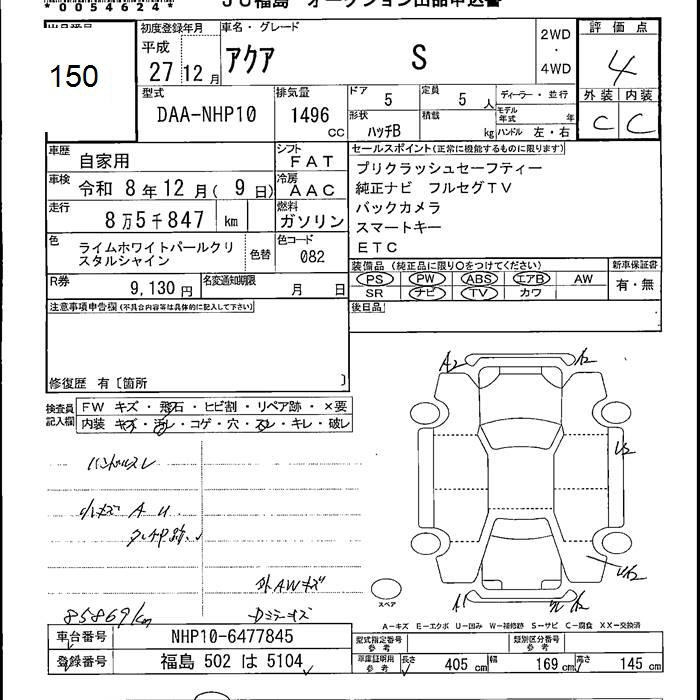 *0054624*
JU福島 オークション出品申込書
出品番号
150
初度登録年月
平成
27 12 月
車名・グレード
アクア S
2WD
・
4WD
評価点
4
外装 内装
C C
型式
DAA-NHP10
排気量
1496
cc
ドア
5
定員
5 人
形状
ハッチB
積載
kg
ディーラー・並行
モデル年式 年
ハンドル 左・右
車歴
自家用
シフト
FAT
車検
令和 8年12月( 9日)
冷房
AAC
走行
8万5千847 km
燃料
ガソリン
色
ライムホワイトパールクリ
スタルシャイン
色替
色コード
082
R券
9,130 円
名変通知期限
月 日
セールスポイント(正常に機能するものに限ります)
プリクラッシュセーフティー
純正ナビ フルセグTV
バックカメラ
スマートキー
ETC
装備品 (純正品に限り○をつけてください)
PS PW ABS エアB AW
SR ナビ TV カワ
新車保証書
有・無
注意事項申告欄(不具合内容等は具体的に記入して下さい)
後日品
修復歴 有〔箇所 〕
検査員
記入欄
FW キズ・飛石・ヒビ割・リペア跡・×要
内装 キズ・汚レ・コゲ・穴・スレ・キレ・破レ
ハンドルスレ
小キズ A U
外AWキズ
Dミラーキズ
85869km
A2
A2
U2
A1
A2
スペア
A-キズ E-エクボ U-凹み W-補修跡 S-サビ C-腐食 XX-交換済
車台番号
NHP10-6477845
登録番号
福島 502 は 5104
型式指定番号
参考
類別区分番号
参考
車庫証明用
参考
長さ 405 cm 幅 169 cm 高さ 145 cm